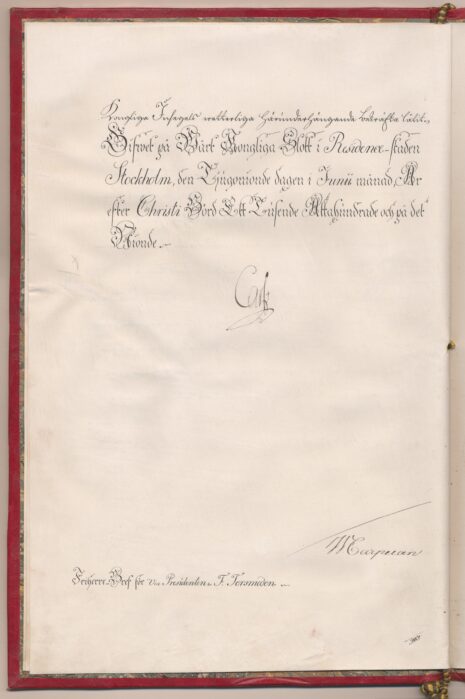 Kongliga Insegel retteligen härunderhängande bekräfta låtit,
Gifvet på Wårt Kongliga Slott i Residence-staden
Stockholm, den Tjugonionde dagen i Junii månad, År
efter Christi Börd Ett Tusende Åttahundrade och på det
Nionde.
Carl
Friherre-Bref för Vice Presidenten F. Tersmeden